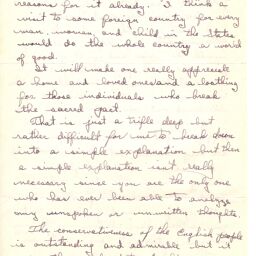 reasons for it already. I think a
visit to some foreign country for every
man, woman, and child in the States
would do the whole country a world
of good.
It will make one really appreciate
a home and loved ones and a loathing
for those individuals who break
the sacred pact.
That is just a trifle deep but
rather difficult for me to break down
into a simple explanation but then
a simple explanation isn't really
necessary since you are the only one
who has ever been able to analyze
my unspoken or unwritten thoughts.
The conservativeness of the English people
is outstanding and admirable but it